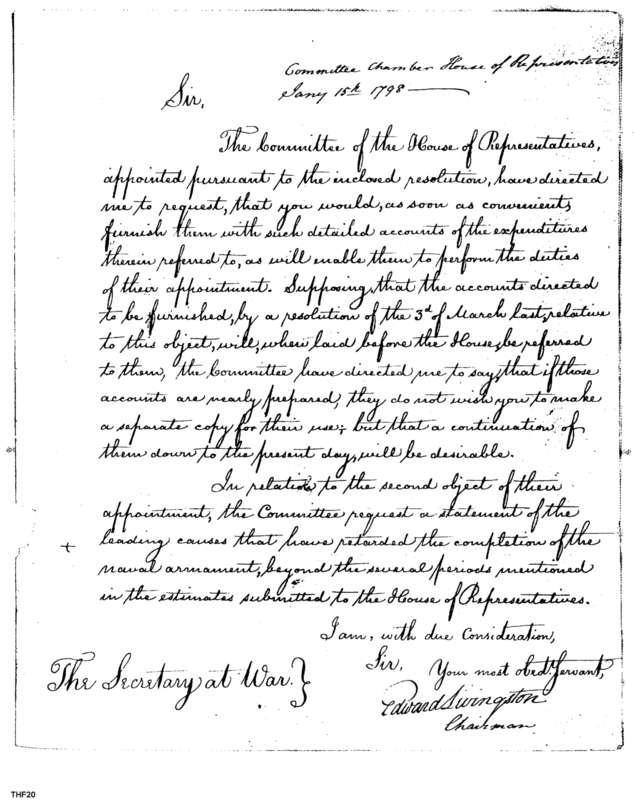 Committee Chamber House of Representatives
Jany 15th 1798
Sir,
The Committee of the House of Representatives,
appointed pursuant to the inclosed resolution, have directed
me to request, that you would, as soon as convenient,
furnish them with such detailed accounts of the expenditures
therein referred to, as will enable them to perform the duties
of their appointment. Supposing, that the accounts directed
to be furnished, by a resolution of the 3d of March last, relative
to this object, will, when laid before the House, be referred
to them, the Committee have directed me to say, that if those
accounts are nearly prepared, they do not wish you to make
a separate copy for their use; but that a continuation of
them down to the present day, will be desirable.
In relation to the second object of their
appointment, the Committee request a statement of the
+ leading causes that have retarded the completion of the
naval armament, beyond the several periods mentioned
in the estimates submitted to the House of Representatives.
I am, with due Consideration,
Sir, Your most obedt. Servant,
The Secretary at War. }
Edward Livingston
Chairman
THF20